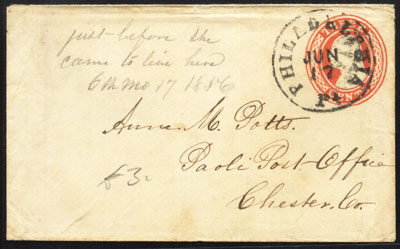 just before she
came to live here
6th mo 17 1856
PHILADELPHIA
JUN
17
Pa.
Anna M. Potts.
Paoli Post-Office
Chester. Co.